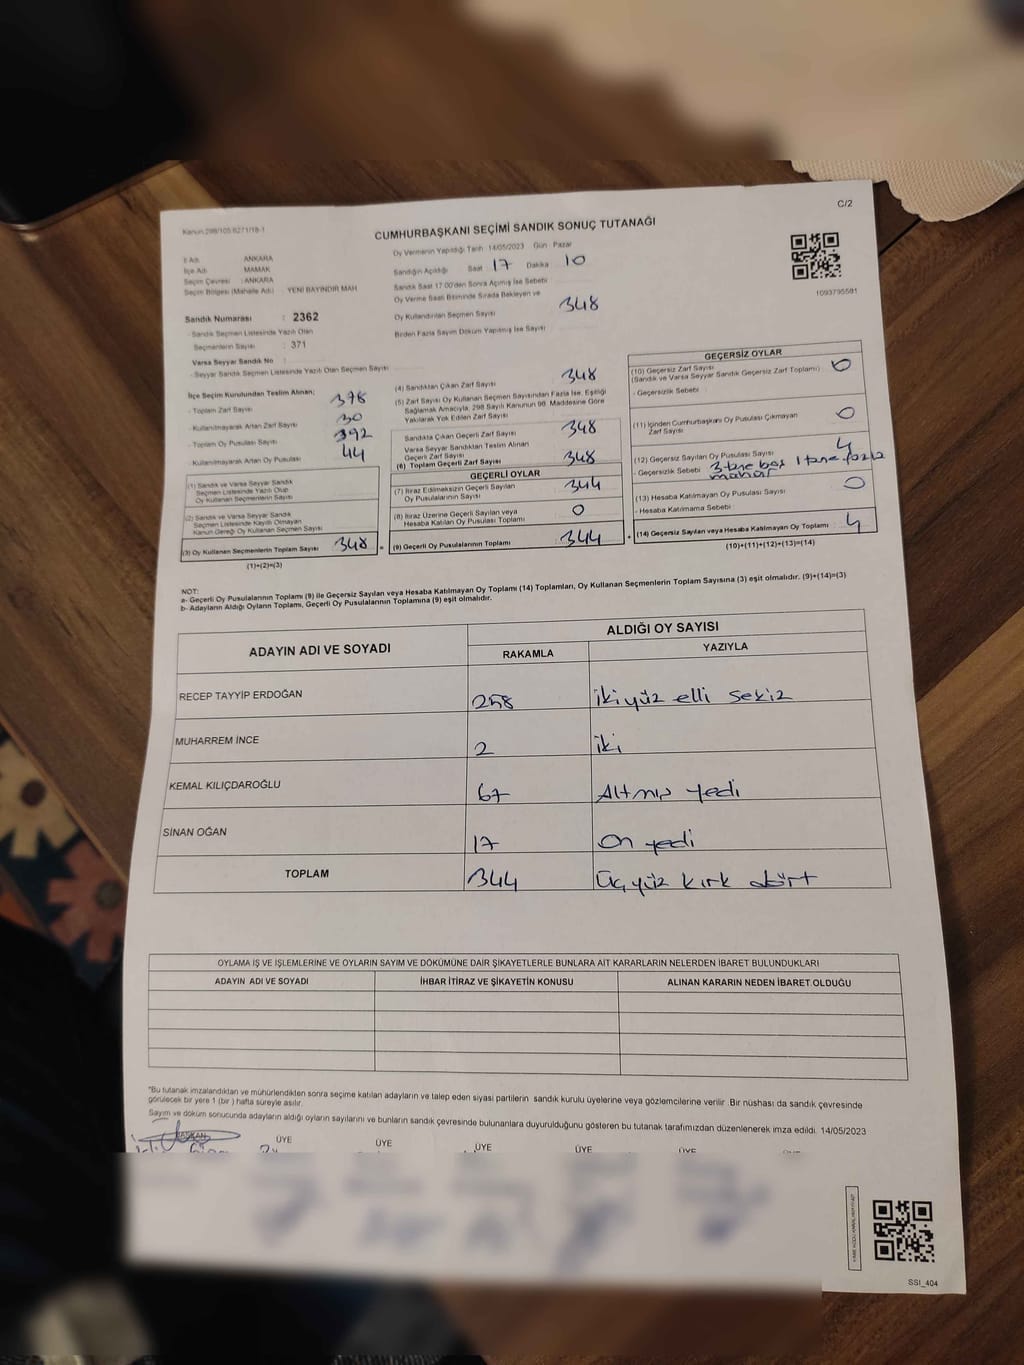 C/2
Kanun 298/105 6271/18-1
CUMHURBAŞKANI SEÇİMİ SANDIK SONUÇ TUTANAĞI
Oy Vermenin Yapıldığı Tarih 14/05/2023 Gün Pazar
İl Adı ANKARA
İlçe Adı MAMAK
Seçim Çevresi : ANKARA
Seçim Bölgesi (Mahalle Adı) YENİ BAYINDIR MAH
Sandığın Açıldığı Saat 17 Dakika 10
Sandık Saat 17:00'den Sonra Açılmış İse Sebebi
Oy Verme Saati Bitiminde Sırada Bekleyen ve
Oy Kullandırılan Seçmen Sayısı 348
Birden Fazla Sayım Döküm Yapılmış İse Sayısı
1093795581
Sandık Numarası : 2362
- Sandık Seçmen Listesinde Yazılı Olan
Seçmenlerin Sayısı : 371
Varsa Seyyar Sandık No
- Seyyar Sandık Seçmen Listesinde Yazılı Olan Seçmen Sayısı
İlçe Seçim Kurulundan Teslim Alınan;
- Toplam Zarf Sayısı 378
- Kullanılmayarak Artan Zarf Sayısı 30
- Toplam Oy Pusulası Sayısı 392
- Kullanılmayarak Artan Oy Pusulası 44
(1) Sandık ve Varsa Seyyar Sandık
Seçmen Listesinde Yazılı Olup
Oy Kullanan Seçmenlerin Sayısı
(2) Sandık ve Varsa Seyyar Sandık
Seçmen Listesinde Kayıtlı Olmayan
Kanun Gereği Oy Kullanan Seçmen Sayısı
(3) Oy Kullanan Seçmenlerin Toplam Sayısı 348
(1)+(2)=(3)
(4) Sandıktan Çıkan Zarf Sayısı 348
(5) Zarf Sayısı Oy Kullanan Seçmen Sayısından Fazla İse, Eşitliği
Sağlamak Amacıyla, 298 Sayılı Kanunun 98. Maddesine Göre
Yakılarak Yok Edilen Zarf Sayısı
Sandıkta Çıkan Geçerli Zarf Sayısı 348
Varsa Seyyar Sandıktan Teslim Alınan
Geçerli Zarf Sayısı
(6) Toplam Geçerli Zarf Sayısı 348
GEÇERLİ OYLAR
(7) İtiraz Edilmeksizin Geçerli Sayılan
Oy Pusulalarının Sayısı 344
(8) İtiraz Üzerine Geçerli Sayılan veya
Hesaba Katılan Oy Pusulası Toplamı 0
= (9) Geçerli Oy Pusulalarının Toplamı 344
GEÇERSİZ OYLAR
(10) Geçersiz Zarf Sayısı
(Sandık ve Varsa Seyyar Sandık Geçersiz Zarf Toplamı) 0
- Geçersizlik Sebebi
(11) İçinden Cumhurbaşkanı Oy Pusulası Çıkmayan
Zarf Sayısı 0
(12) Geçersiz Sayılan Oy Pusulası Sayısı 4
- Geçersizlik Sebebi 3 tane boş 1 tane fazla
(13) Hesaba Katılmayan Oy Pusulası Sayısı 0
- Hesaba Katılmama Sebebi
+ (14) Geçersiz Sayılan veya Hesaba Katılmayan Oy Toplamı 4
(10)+(11)+(12)+(13)=(14)
NOT:
a- Geçerli Oy Pusulalarının Toplamı (9) ile Geçersiz Sayılan veya Hesaba Katılmayan Oy Toplamı (14) Toplamları, Oy Kullanan Seçmenlerin Toplam Sayısına (3) eşit olmalıdır. (9)+(14)=(3)
b- Adayların Aldığı Oyların Toplamı, Geçerli Oy Pusulalarının Toplamına (9) eşit olmalıdır.
ADAYIN ADI VE SOYADI
ALDIĞI OY SAYISI
RAKAMLA YAZIYLA
RECEP TAYYİP ERDOĞAN 258 iki yüz elli sekiz
MUHARREM İNCE 2 iki
KEMAL KILIÇDAROĞLU 67 Altmış yedi
SİNAN OĞAN 17 On yedi
TOPLAM 344 Üç yüz kırk dört
OYLAMA İŞ VE İŞLEMLERİNE VE OYLARIN SAYIM VE DÖKÜMÜNE DAİR ŞİKAYETLERLE BUNLARA AİT KARARLARIN NELERDEN İBARET BULUNDUKLARI
ADAYIN ADI VE SOYADI İHBAR İTİRAZ VE ŞİKAYETİN KONUSU ALINAN KARARIN NEDEN İBARET OLDUĞU
*Bu tutanak imzalandıktan ve mühürlendikten sonra seçime katılan adayların ve talep eden siyasi partilerin sandık kurulu üyelerine veya gözlemcilerine verilir. Bir nüshası da sandık çevresinde
görülecek bir yere 1 (bir ) hafta süreyle asılır.
Sayım ve döküm sonucunda adayların aldığı oyların sayılarını ve bunların sandık çevresinde bulunanlara duyurulduğunu gösteren bu tutanak tarafımızdan düzenlenerek imza edildi. 14/05/2023
BAŞKAN ÜYE ÜYE ÜYE ÜYE ÜYE
SSI_404